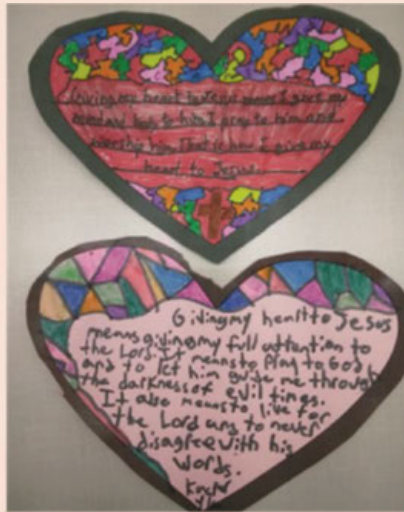 Giving my heart to Jesus means I give my
to him I pray to him and
worship him. That is how I give my
heart to Jesus.
Giving my heart to Jesus
means giving my full attention to
the Lord. It means to pray to God
and to let him guide me through
the darkness of evil times.
It also means to live for
the Lord and to never
disagree with his
words.